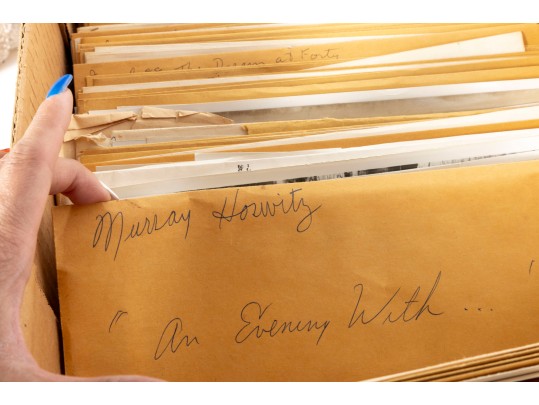 Dream at Forto
Murray Horwitz
" An Evening With ... "